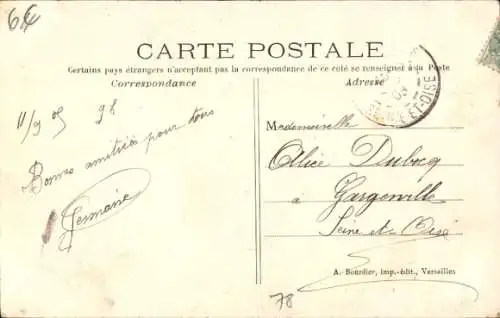 6€
CARTE POSTALE
Certains pays étrangers n'acceptant pas la correspondance de ce côté se renseigner à la Poste
Correspondance
Adresse
ET-OISE
11/9 05 9h
Bonnes amitiés pour tous
Germaine
Mademoiselle
Alice Dubocq
à
Gargenville
Seine et Oise
A. Bourdier, imp.-édit., Versailles
78